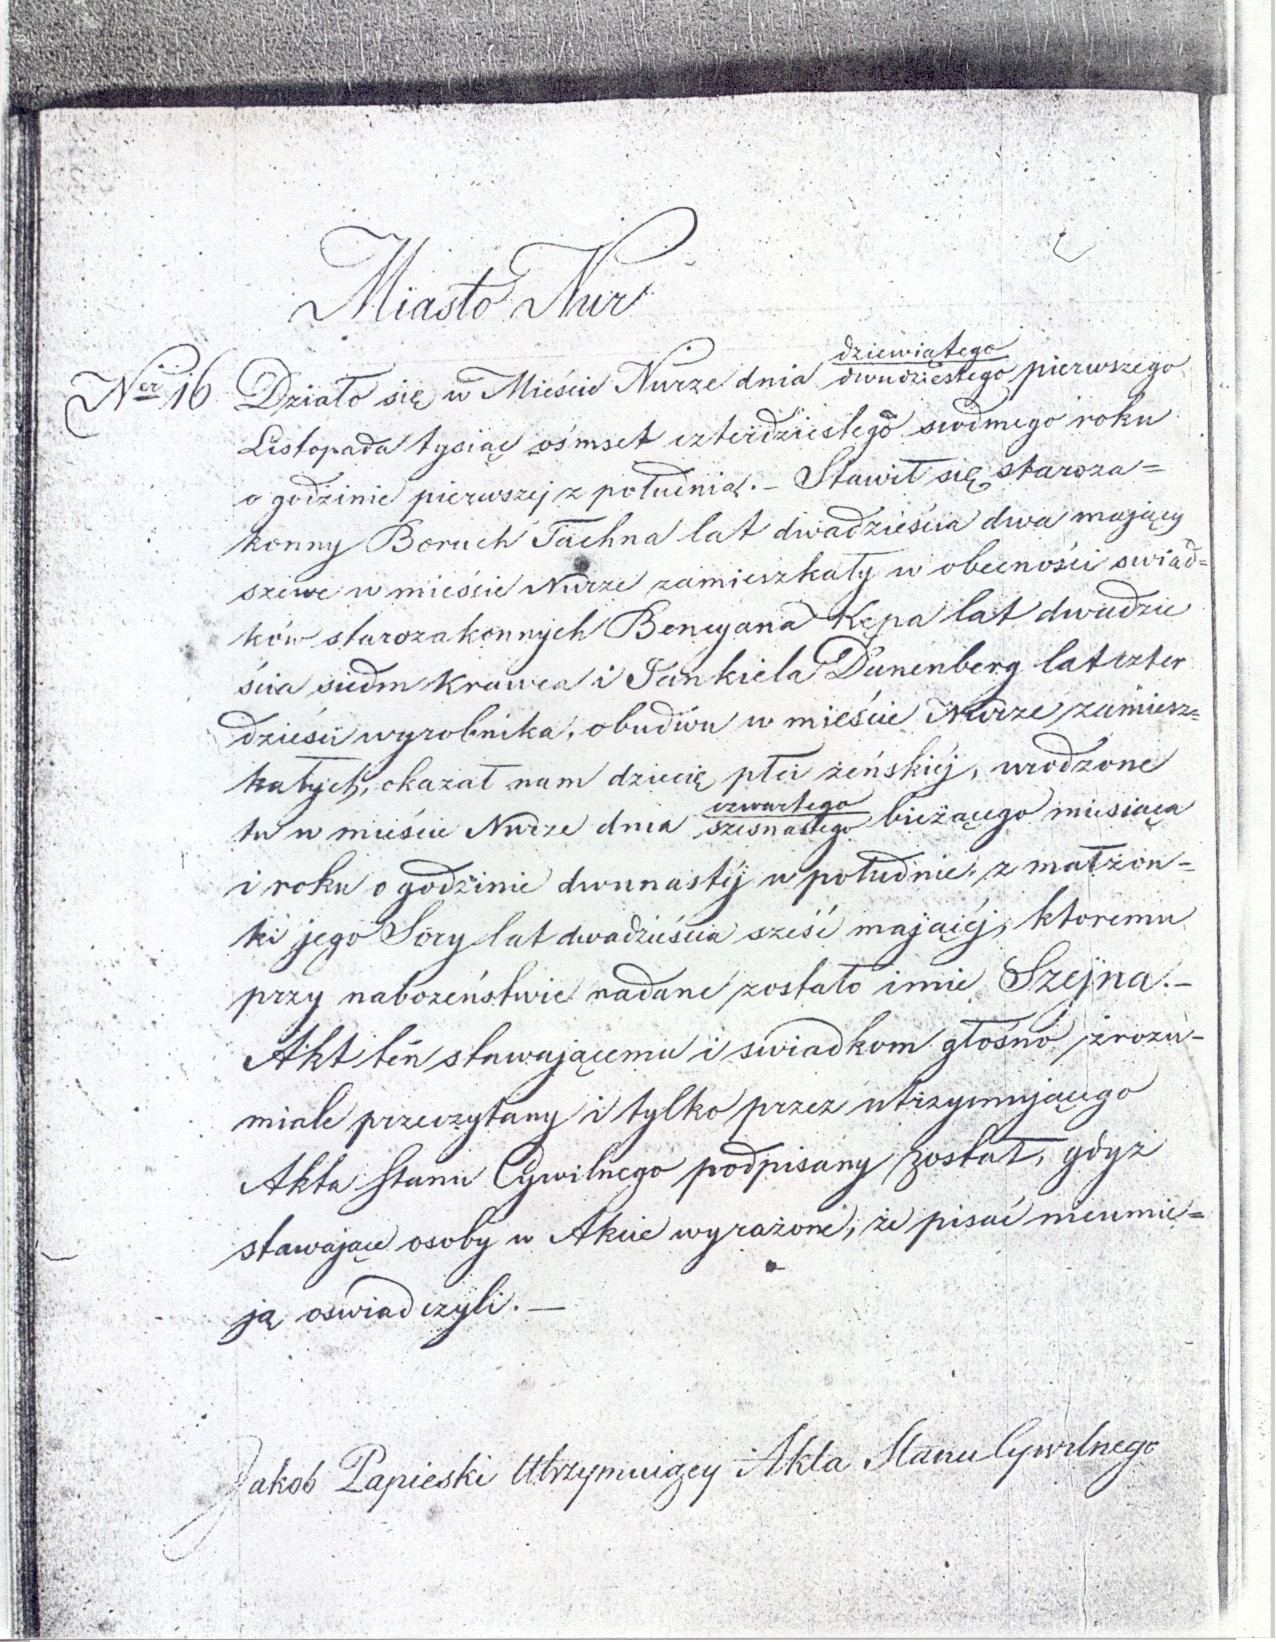 Miasto Nur
Ner 16 Działo się w Mieście Nurze dnia dziewiątego
dwudziestego pierwszego
Listopada tysiąc ośmset czterdziestego siodmego roku
o godzinie pierwszej z południa. – Stawił się staroza=
konny Boruch Tachna lat dwadzieścia dwa mający
szewc w miescie Nurze zamieszkały w obecności swiad=
ków starozakonnych Bencyana Kępa lat dwadzie
ścia siedm krawca i Jankiela Danenberg lat czter
dzieści wyrobnika, obudwu w mieście Nurze zamiesz=
kałych, okazał nam dziecię płci żeńskiéj, urodzone
tu w mieście Nurze dnia czwartego
szesnastego bieżącego miesiąca
i roku o godzinie dwunastéj w południe, z małżon=
ki jego Sory lat dwadzieścia sześć mającéj, ktoremu
przy nabożeństwie nadane zostało imie Szejna. –
Akt ten stawającemu i swiadkom głośno, zrozu–
miale przeczytany i tylko przez utrzymującego
Akta Stanu Cywilnego podpisany został, gdyż
stawające osoby w Akcie wyrażone, że pisać nieumie=
ją oswiadczyli. –
Jakob Papieski Utrzymuiący Akta Stanu Cywilnego